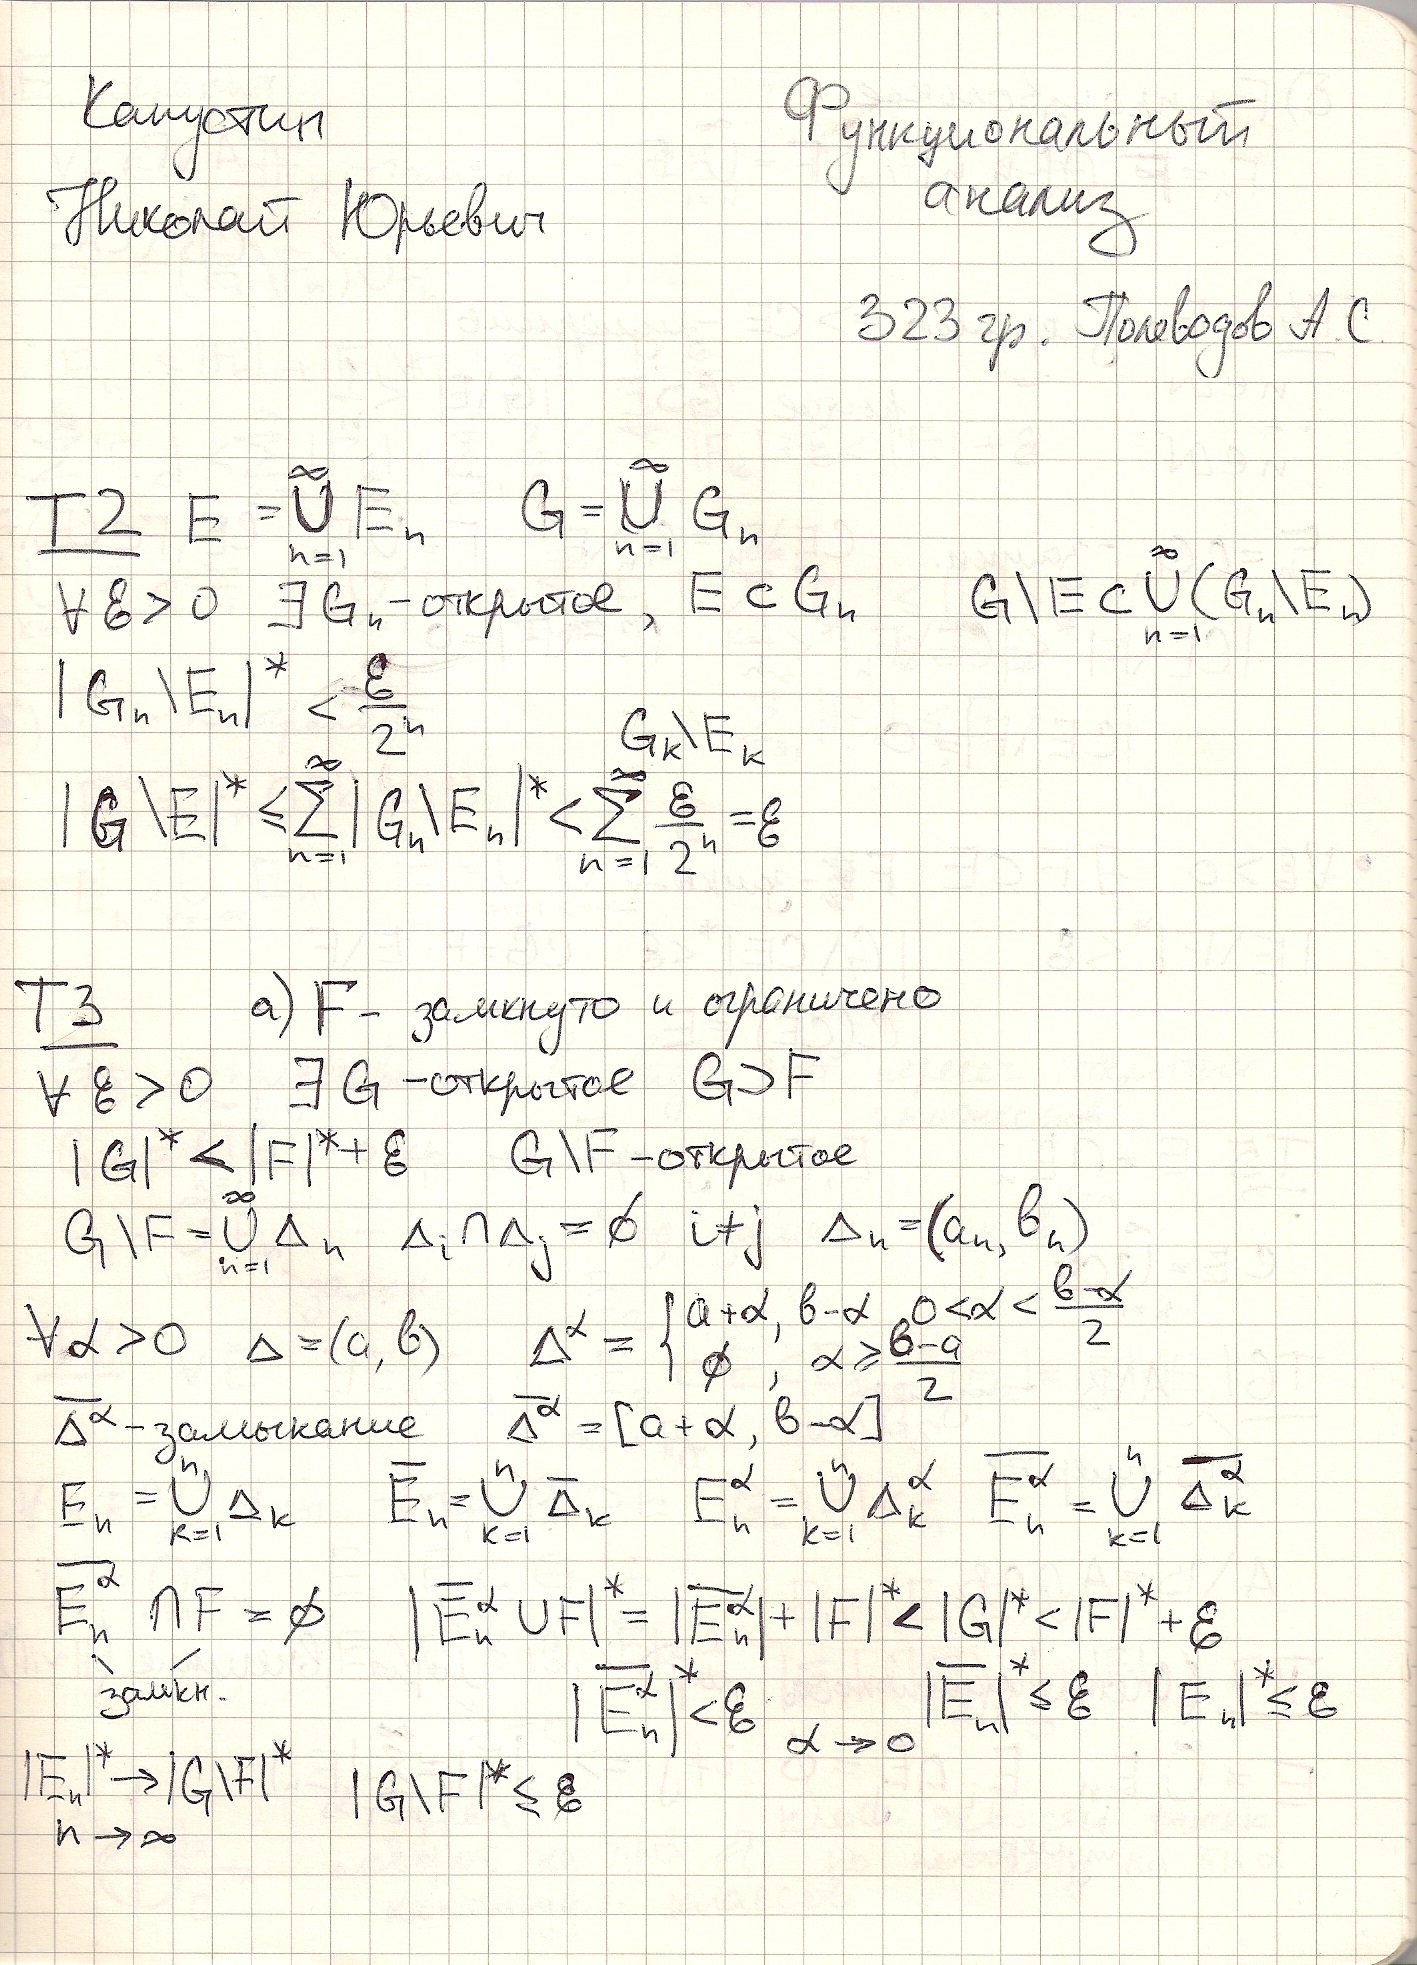 Капустин
Николай Юрьевич
Функциональный
анализ
323 гр. Полеводов А.С.
T2 E = ∞⋃n=1 En G = ∞⋃n=1 Gn
∀ε>0 ∃Gn-открытое, E⊂Gn G\E⊂∞⋃n=1(Gn\En)
|Gn\En|* < ε/2^n
Gk\Ek
|G\E|* ≤ ∞∑n=1|Gn\En|* < ∞∑n=1 ε/2^n = ε
T3 а) F- замкнуто и ограничено
∀ε>0 ∃G-открытое G⊃F
|G|* < |F|*+ε G\F-открытое
G\F = ∞⋃n=1 Δn Δi∩Δj = ∅ i≠j Δn = (an, bn)
∀α>0 Δ=(a,b) Δ^α = { a+α, b-α 0<α<(b-α)/2
∅, α≥(b-a)/2
Δ̅^α-замыкание Δ̅^α = [a+α, b-α]
En = n⋃k=1 Δk E̅n = n⋃k=1 Δ̅k En^α = n⋃k=1 Δk^α E̅n^α = n⋃k=1 Δ̅k^α
E̅n^α ∩F = ∅ |E̅n^α ∪F|* = |E̅n^α|+|F|* < |G|* < |F|*+ε
замкн. |E̅n^α|* < ε α→0 |E̅n|* ≤ ε |En|* ≤ ε
|En|* → |G\F|* |G\F|* ≤ ε
n→∞